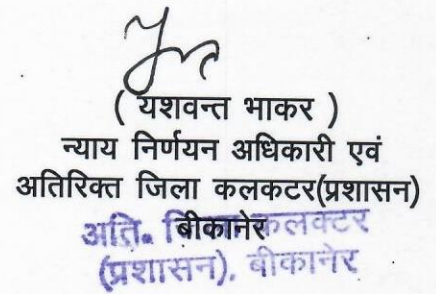 ( यशवन्त भाकर )
न्याय निर्णयन अधिकारी एवं
अतिरिक्त जिला कलकटर(प्रशासन)
बीकानेर
अति. कलक्टर
(प्रशासन), बीकानेर